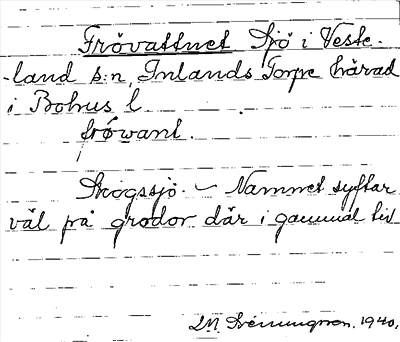 Frövattnet Sjö i Veste-
-land s:n, Inlands Torpe härad
i Bohus l
frövant.
Skogssjö. – Namnet syftar
väl på grodor där i gammal tid
1940.